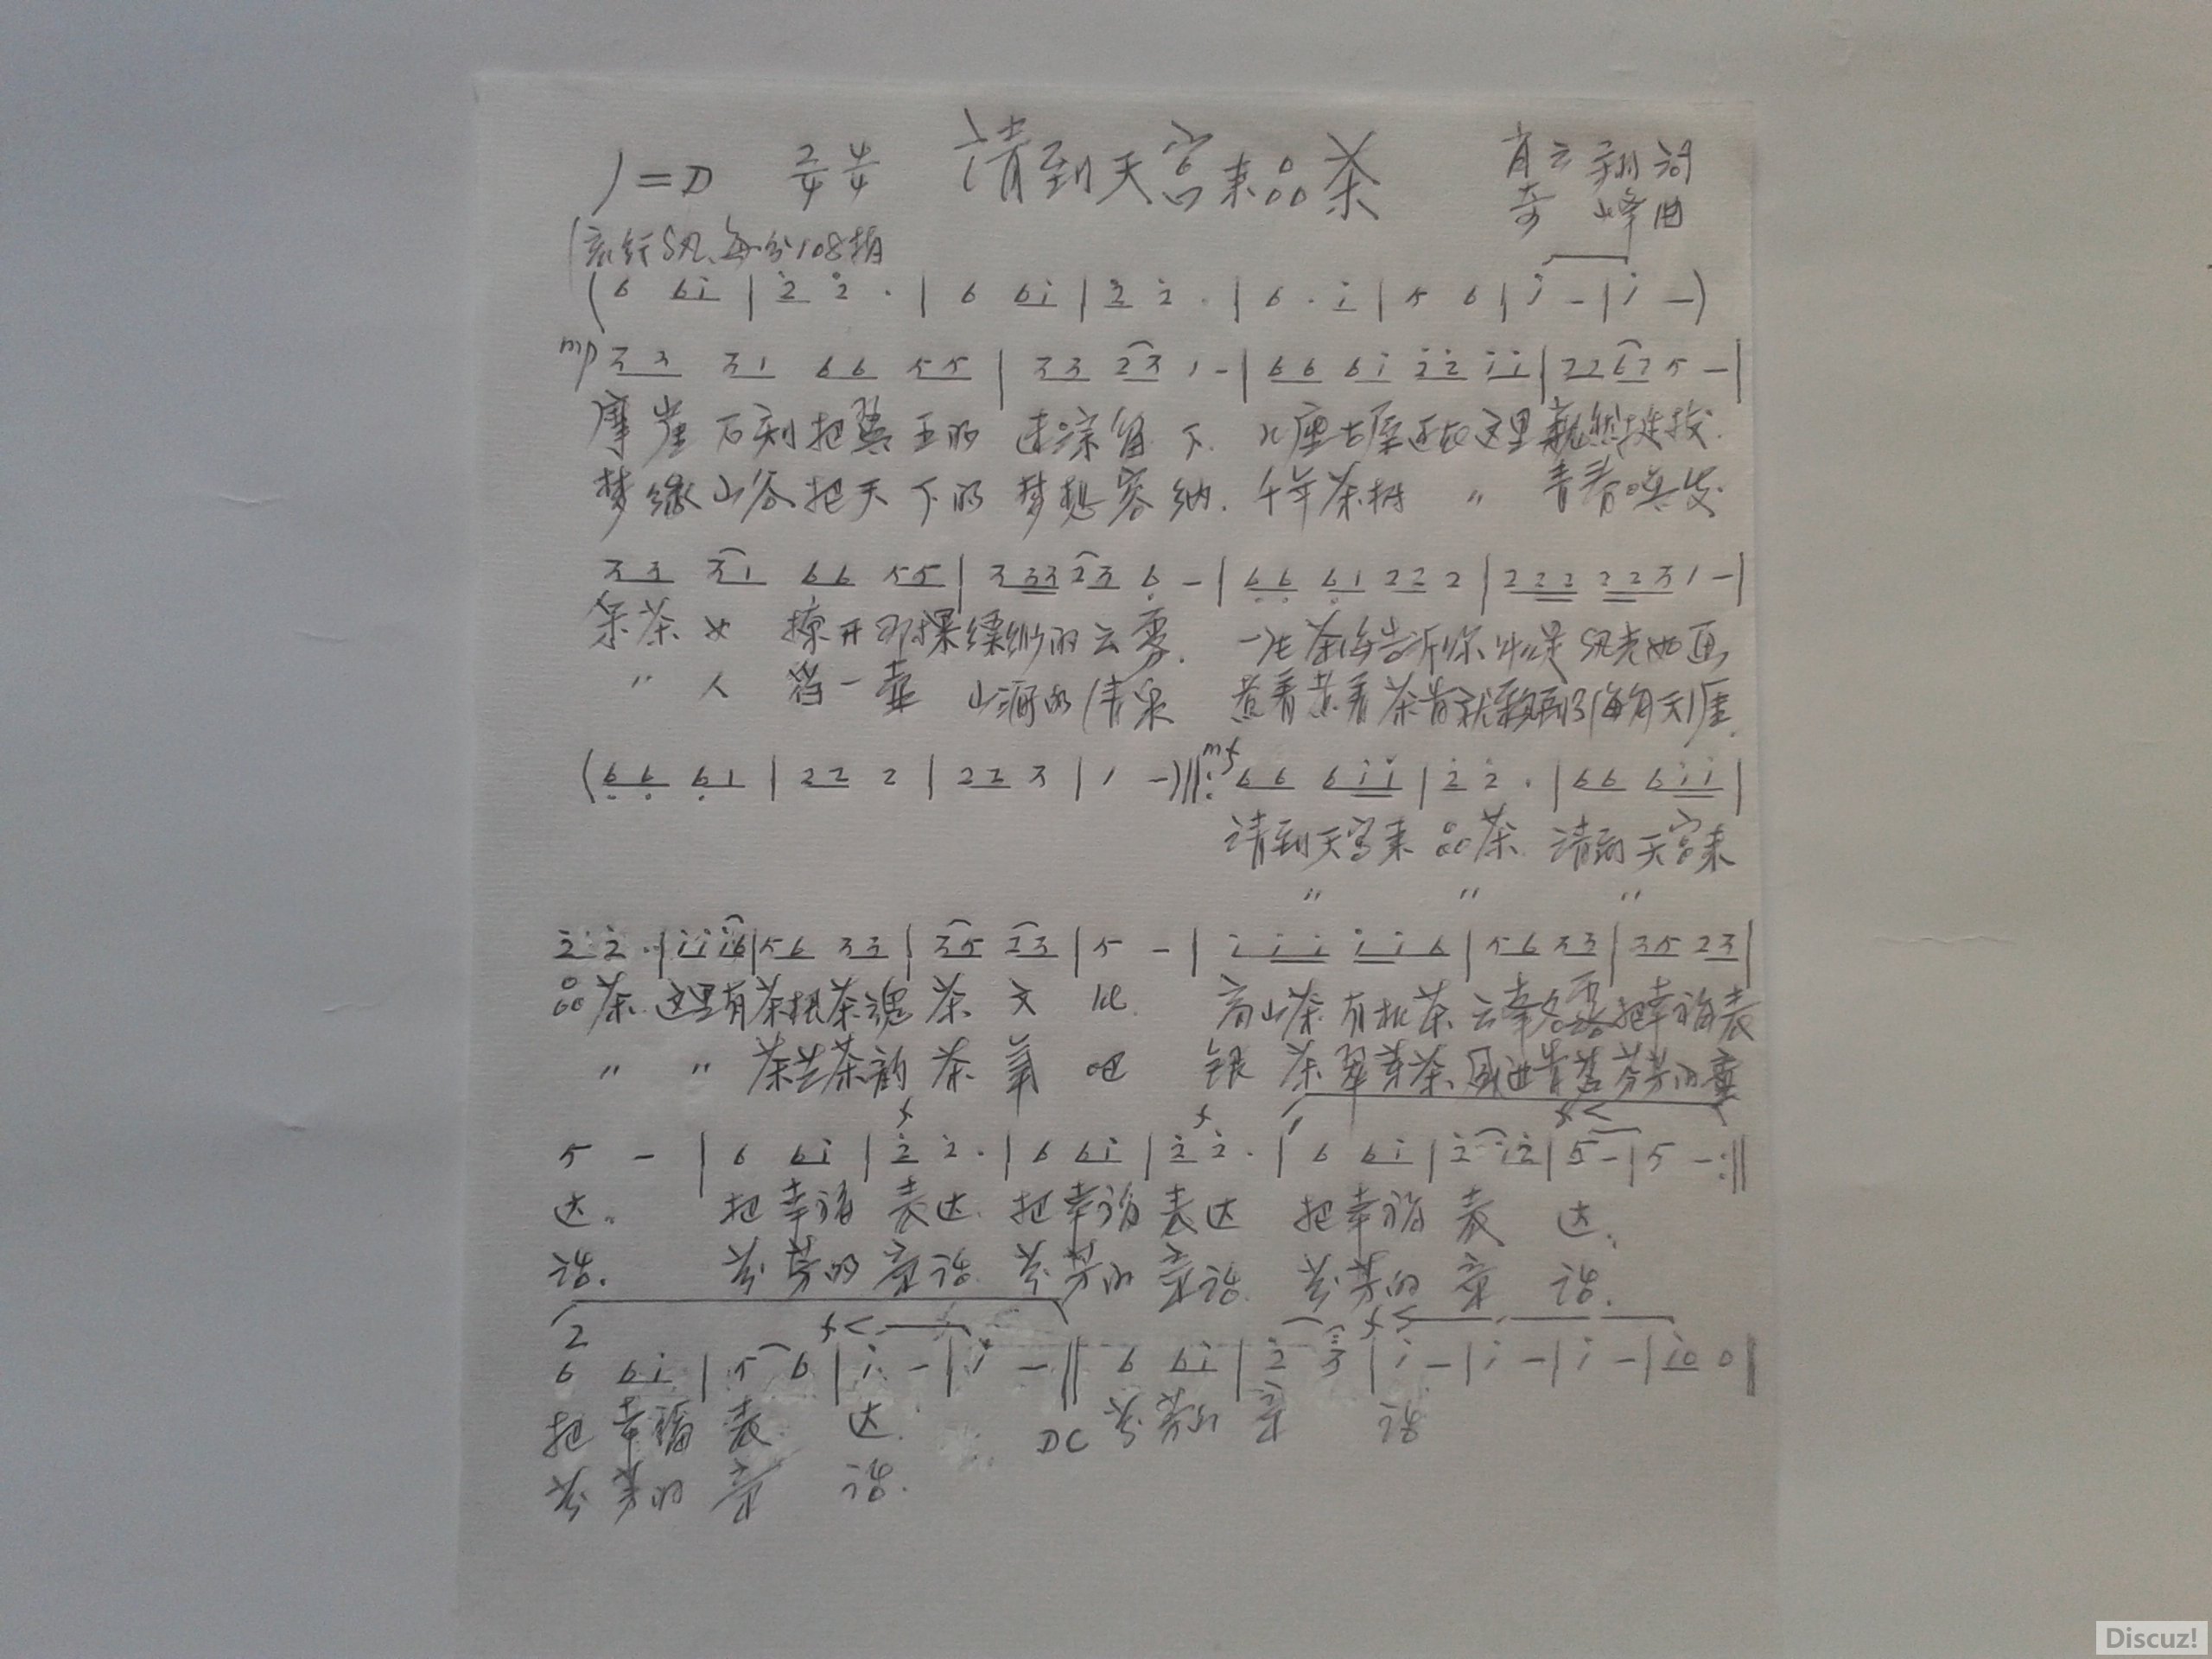 1=D 2/4 4/4 请到天宫来品茶 肖云翔词
奇峰曲
流行风、每分108拍
(6 6i | 2 2 · | 6 6i | 2 2 · | 6 · i | 5 6 | i - | i -)
mp 3 3 3 1 6 6 5 5 | 3 3 2 3 1 - | 6 6 6 i 2 2 i i | 2 2 6 2 5 - |
摩崖石刻把翼王的 迹踪留下. 座古 还在这里 然挺拔.
梦缘山谷把天下的梦想容纳. 千年茶树 〃 青春焕发
3 3 3 1 6 6 5 5 | 3 3 3 2 3 6 - | 6 6 6 1 2 2 2 | 2 2 2 2 2 3 1 - |
采茶女 撩开那 缥缈的云雾. 告诉你 风光如画
〃 人 一壶 山涧的清泉 煮着煮着茶香就飘到了海角天涯.
(6 6 6 1 | 2 2 2 | 2 2 3 | 1 -)‖: mf 6 6 6 i i | 2 2 · | 6 6 6 i i |
请到天宫来 品茶. 请到天宫来
〃 〃 〃
2 2 · | i i i 6 | 5 6 3 3 | 3 5 2 3 | 5 - | i i i i i 6 | 5 6 3 3 | 3 5 2 3 |
品茶. 这里有茶根茶魂 茶 文 化. 高山茶 有机茶 云 把幸福表
〃 〃 茶艺茶韵 茶 氧 吧 银 茶 翠芽茶 芬芳的童
5 - | 6 6i | 2 2 · | 6 6i | 2 2 · | 6 6i | 2 i2 | 5 - | 5 - :‖
达. 把幸福 表达. 把幸福 表达 把幸福 表 达.
话. 芬芳的 童话. 芬芳的 童话. 芬芳的 童 话.
2 f<
6 6i | 5 6 | i - | i - ‖ 6 6i | 2 3 | i - | i - | i - | i0 0 |
把 幸福 表 达. DC 芬芳的 童 话
芬 芳的 童 话.
Discuz!